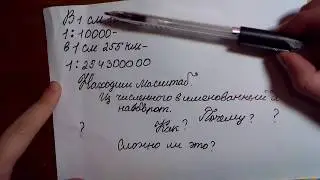 В 1 см
1:10000-
в 1 см 255 км-
1:254300000
Находим масштаб.
Из численного в именованный и
наоборот.
Почему? ?
? Как?
Сложно ли это?